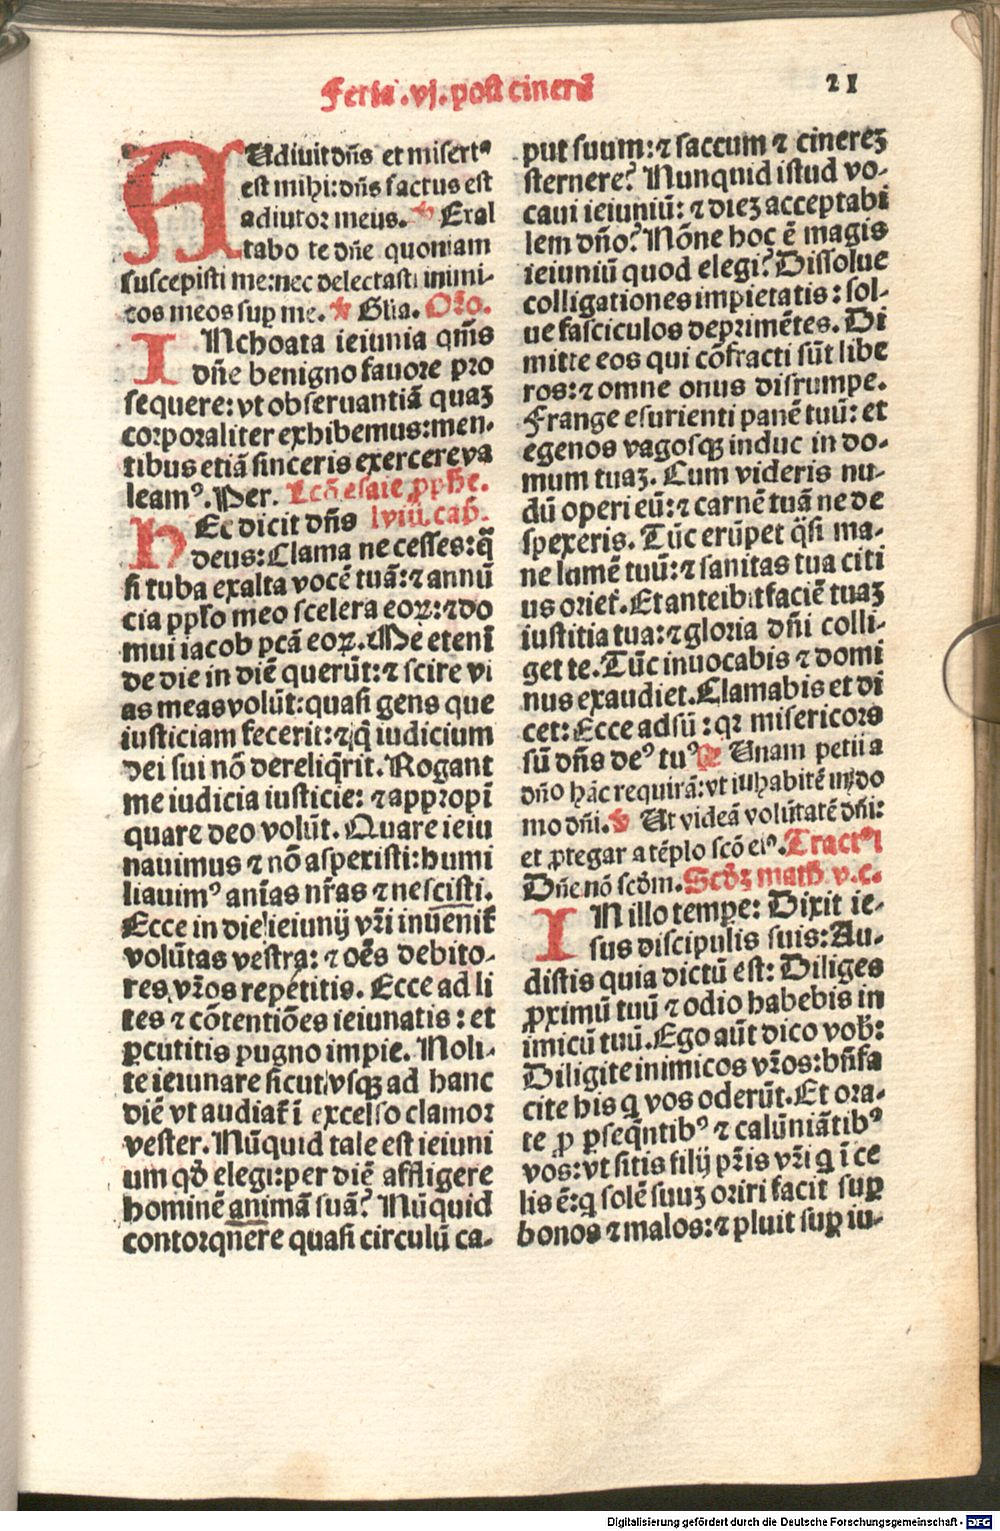 Feria .vj. post cinerū
21
AUdiuit dn̄s et misertꝰ
est mihi: dn̄s factus est
adiutor meus. ℣ Exal
tabo te dn̄e quoniam
suscepisti me: nec delectasti inimi-
cos meos suꝑ me. ℣ Glia. Oro.
INchoata ieiunia qm̄s
dn̄e benigno fauore pro
sequere: vt obseruantiā quaꝫ
corporaliter exhibemus: men-
tibus etiā sinceris exercere va
leamꝰ. Per. Lcō esaie ꝓphe.
HEc dicit dn̄s lviij. cap.
deus: Clama ne cesses: q̄
si tuba exalta vocē tuā: ⁊ annū
cia pplo meo scelera eoꝝ: ⁊ do
mui iacob pcā eoꝝ. Me etenī
de die in diē querūt: ⁊ scire vi
as meas volūt: quasi gens que
iusticiam fecerit: ⁊ q̄ iudicium
dei sui nō dereliq̄rit. Rogant
me iudicia iusticie: ⁊ appropī
quare deo volūt. Quare ieiu
nauimus ⁊ nō aspexisti: humi
liauimꝰ anīas nr̄as ⁊ nescisti.
Ecce in die ieiunij vr̄i inuenit̄
volūtas vestra: ⁊ oēs debito-
res vr̄os repetitis. Ecce ad li
tes ⁊ cōtentiōes ieiunatis: et
ꝑcutitis pugno impie. Noli-
te ieiunare sicut vsqꝫ ad hanc
diē vt audiat̄ ī excelso clamor
vester. Nūquid tale est ieiuni
um qd̄ elegi: per diē affligere
hominē animā suā? Nūquid
contorquere quasi circulū ca-
put suum: ⁊ saccum ⁊ cinereꝫ
sternere? Nunquid istud vo-
caui ieiuniū: ⁊ dieꝫ acceptabi
lem dn̄o? Nōne hoc ē magis
ieiuniū quod elegi? Dissolue
colligationes impietatis: sol-
ue fasciculos deprimētes. Di
mitte eos qui cōfracti sūt libe
ros: ⁊ omne onus disrumpe.
Frange esurienti panē tuū: et
egenos vagosqꝫ induc in do-
mum tuaꝫ. Cum videris nu-
dū operi eū: ⁊ carnē tuā ne de
spexeris. Tūc erūpet q̄si ma-
ne lumē tuū: ⁊ sanitas tua citi
us oriet̄. Et anteibit faciē tuaꝫ
iustitia tua: ⁊ gloria dn̄i colli-
get te. Tūc inuocabis ⁊ domi
nus exaudiet. Clamabis et di
cet: Ecce adsū: qꝛ misericors
sū dn̄s deꝰ tuꝰ ℟ Unam petii a
dn̄o hāc requirā: vt inhabitē in do
mo dn̄i. ℣ Ut videā volūtatē dn̄i:
et ꝓtegar a tēplo scō eiꝰ. Tractꝰ
Dn̄e nō scd̄m. Scd̄ꝫ math. v. c.
IN illo tempore: Dixit ie-
sus discipulis suis: Au-
distis quia dictū est: Diliges
ꝓximū tuū ⁊ odio habebis in
imicū tuū. Ego aūt dico vob̄:
Diligite inimicos vr̄os: bn̄fa
cite his q̄ vos oderūt. Et ora-
te ꝓ ꝑseq̄ntibꝰ ⁊ calūniātibꝰ
vos: vt sitis filij pr̄is vr̄i q̄ ī ce
lis ē: q̄ solē suuꝫ oriri facit suꝑ
bonos ⁊ malos: ⁊ pluit suꝑ iu-
Digitalisierung gefördert durch die Deutsche Forschungsgemeinschaft - DFG